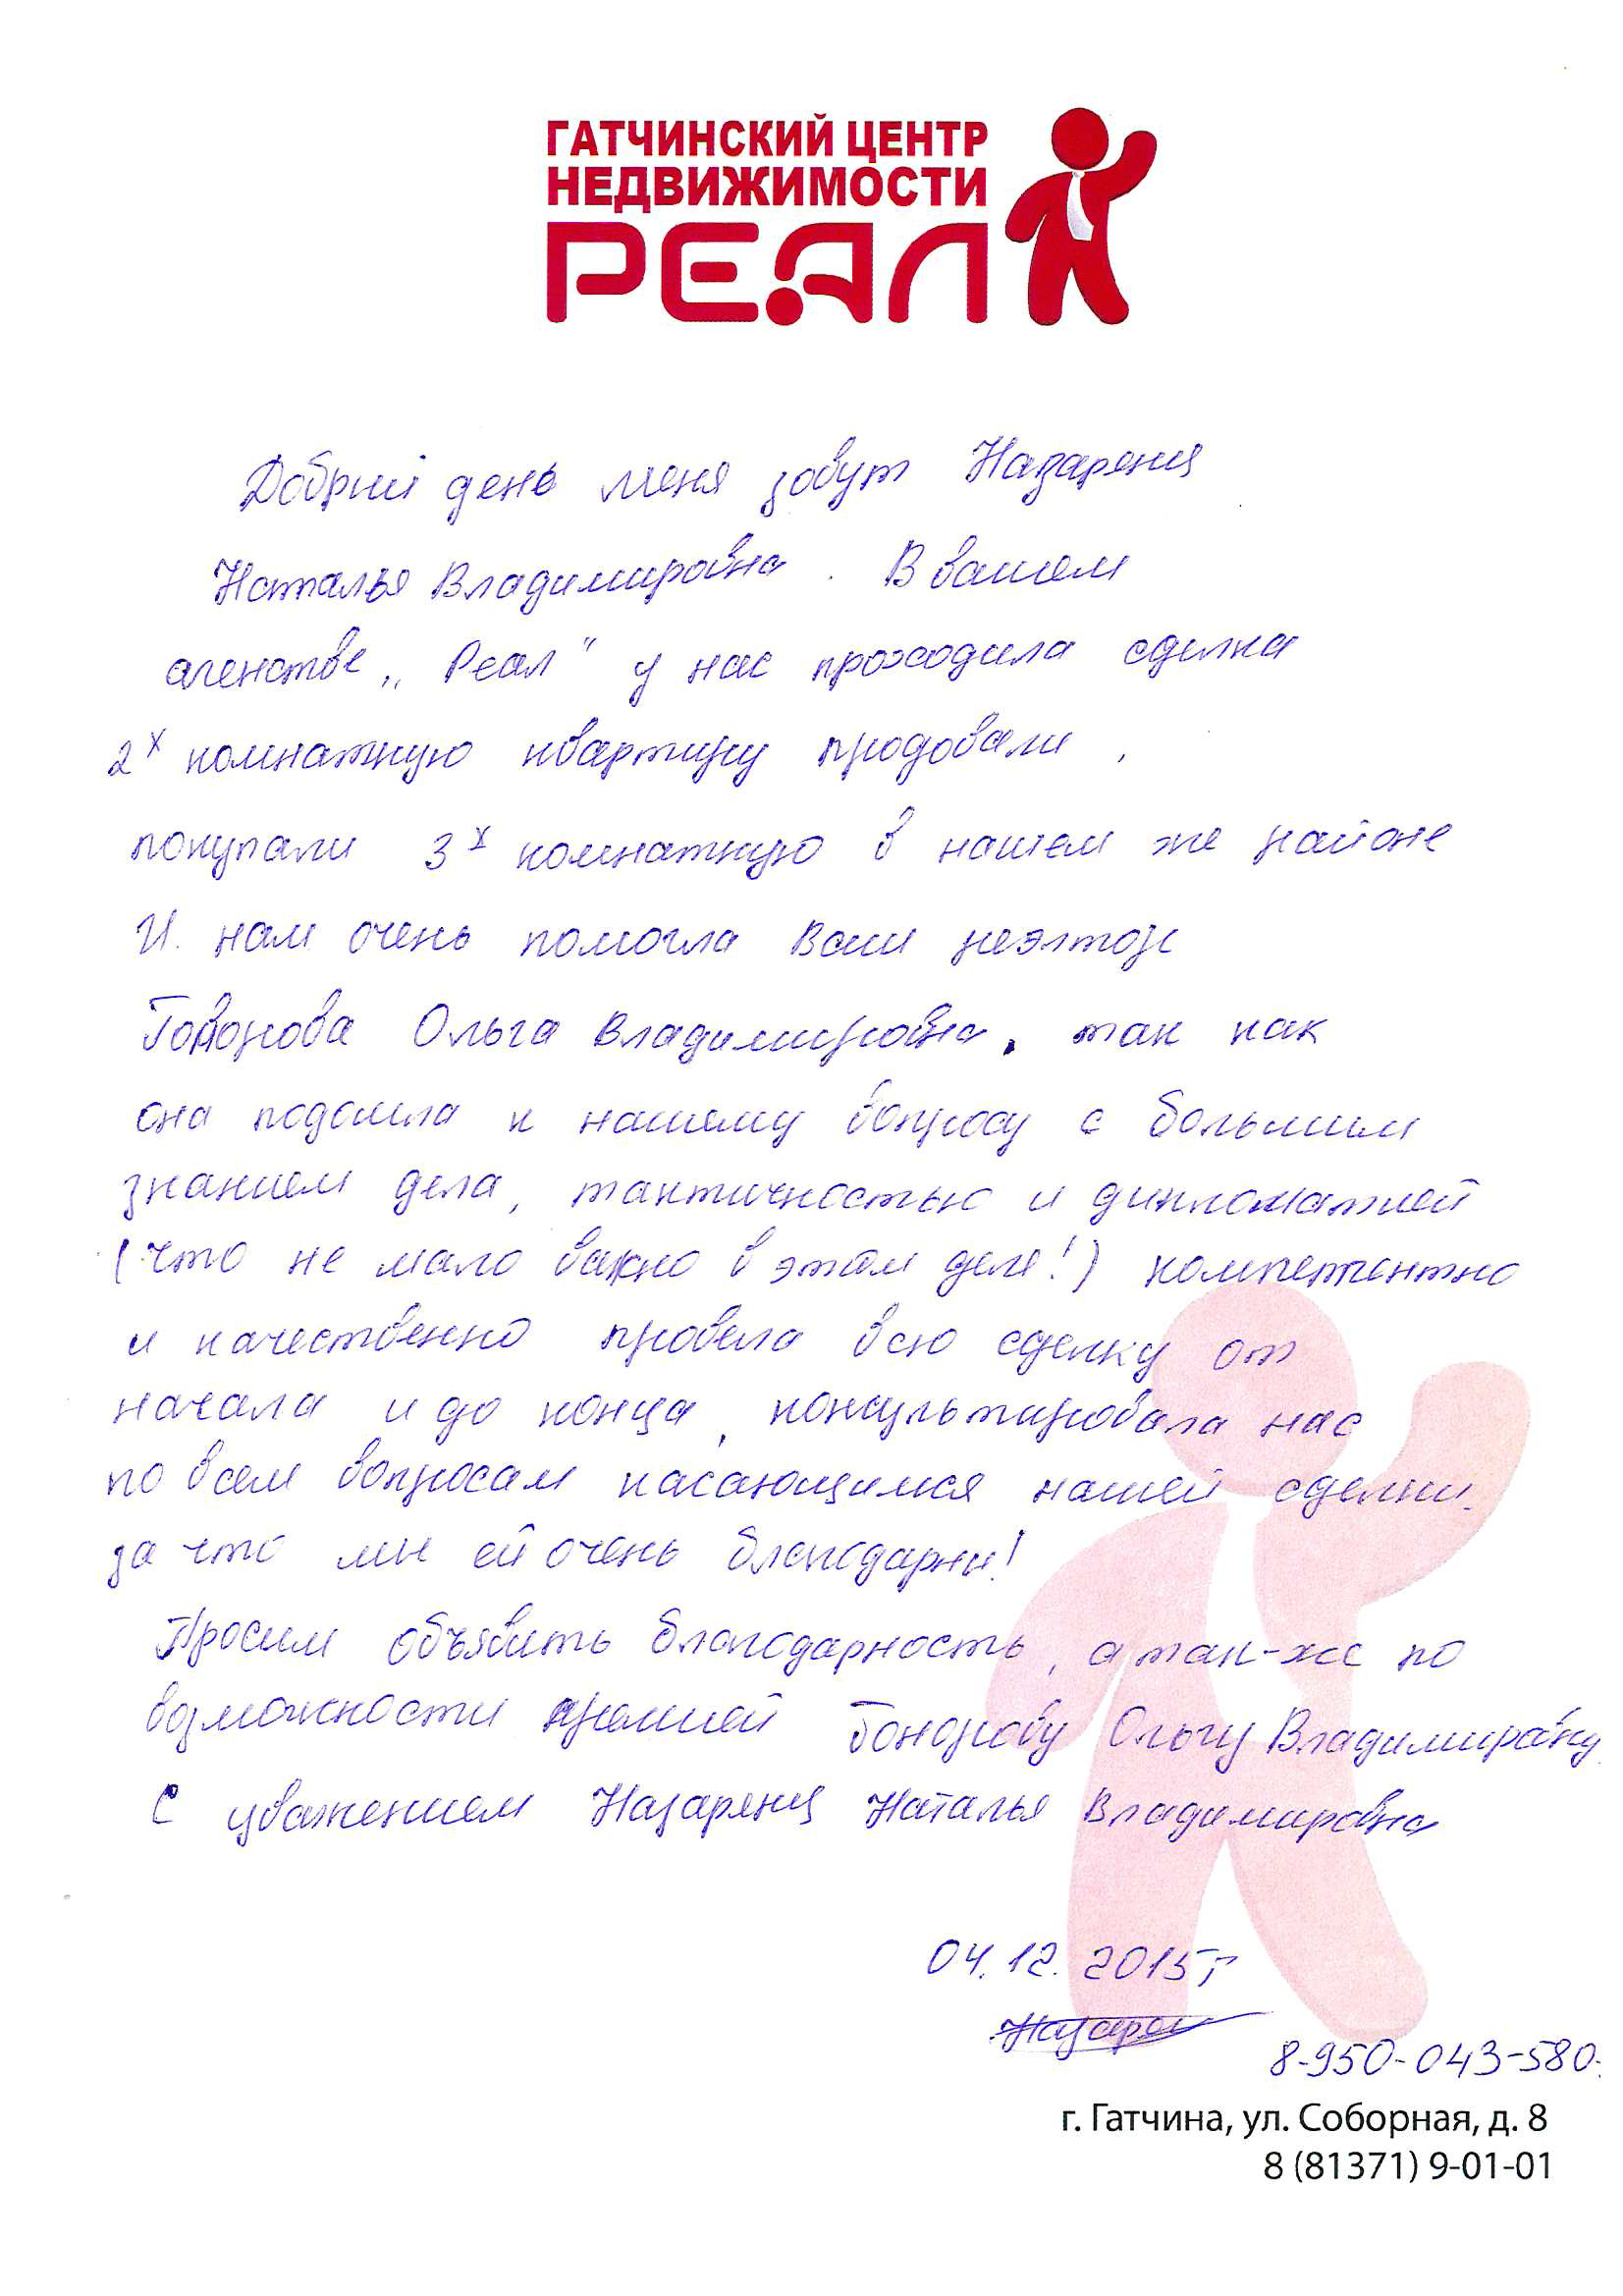 ГАТЧИНСКИЙ ЦЕНТР
НЕДВИЖИМОСТИ
РЕАЛ
Добрый день меня зовут Назаренц
Наталья Владимировна. В вашем
агенстве „Реал" у нас проходила сделка
2х комнатную квартиру продовали,
покупали 3х комнатную в нашем же районе
И нам очень помогла Ваш риэлтор
Ольга Владимировна, так как
она подошла к нашему вопросу с большим
знанием дела, тактичностью и дипломатией
(что не мало важно в этом деле!) компетентно
и качественно провела всю сделку от
начала и до конца, консультировала нас
по всем вопросам касающимся нашей сделки.
за что мы ей очень благодарны!
Просим объявить благодарность, а так-же по
возможности премией Ольгу Владимировну
С уважением Назаренц Наталья Владимировна
04.12.2015г
8-950-043-580-
г. Гатчина, ул. Соборная, д. 8
8 (81371) 9-01-01